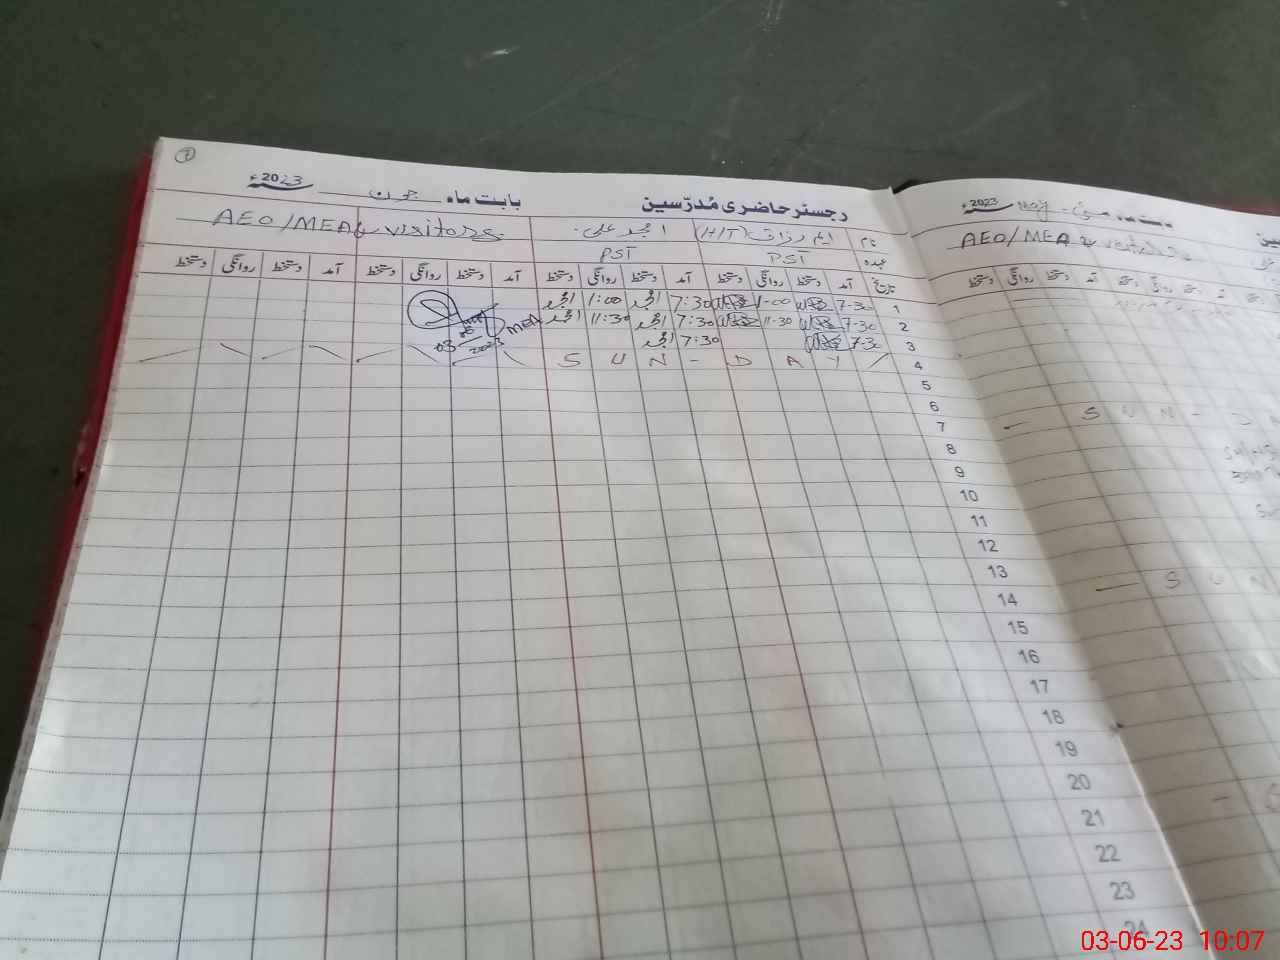 رجسٹر حاضری مُدرّسین بابت ماہ جون 2023ء
نام ایم رزاق (HT) امجد علی AEO/MEA & visitors
عہدہ PST PST
تاریخ آمد دستخط روانگی دستخط آمد دستخط روانگی دستخط آمد دستخط روانگی دستخط آمد دستخط روانگی دستخط
1 7-30 1-00 7:30 امجد 1:00 امجد
2 7-30 11-30 7:30 امجد 11:30 امجد MEA
3 7-30 7:30 امجد 03 2023
4 SUN-DAY
5
6
7
8
9
10
11
12
13
14
15
16
17
18
19
20
21
22
23
24
بابت ماہ مئی May 2023ء
AEO/MEA & visitors
آمد دستخط روانگی دستخط
- SUN-D
- SUN
03-06-23 10:07